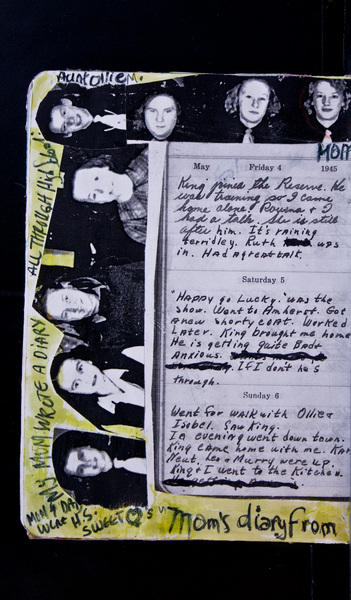 Aunt Ollie M.
MOM
May Friday 4 1945
King joined the Reserve. He
was training so I came
home alone. Rowena + I
had a talk. She is still
after him. It's raining
terridley. Ruth was
in. Had a great talk.
Saturday 5
"Happy go Lucky" was the
show. Went to Amherst. Got
a new shorty coat. Worked
Later. King brought me home
He is getting quite Bad +
Anxious.
If I don't he's
through.
Sunday 6
Went for walk with Ollie +
Isobel. Saw King.
In evening went down town.
King came home with me. Kar
Neut, Leo + Murry were up.
King + I went to the Kitchen.
MY MOM WROTE A DIARY
ALL THROUGH High School
MOM + DAD
WERE H.S.
SWEET ♡'s
Mom's diary from